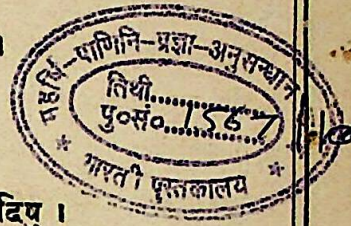 महर्षि-पाणिनि-प्रज्ञा-अनुसन्धान
तिथी..............
पु०सं० 1567
* भारती पुस्तकालय *
दिषु ।